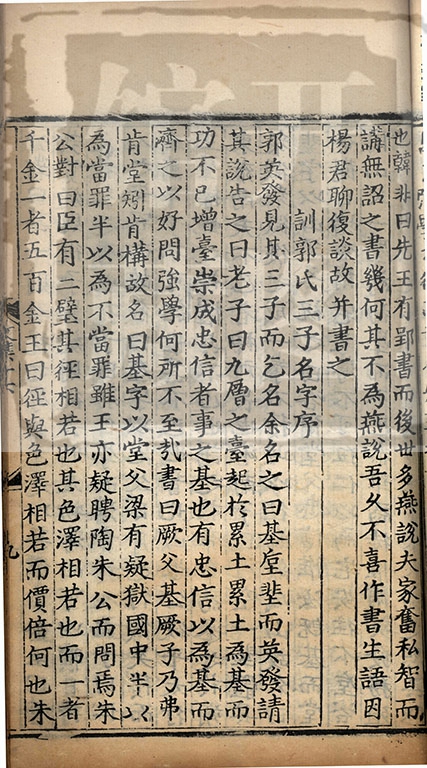 也韓非曰先王有郢書而後世多燕說夫家奮私智而
講無詔之書幾何其不為燕說吾久不喜作書生語因
楊君聊復談故并書之
訓郭氏三子名字序
郭英發見其三子而乞名余名之曰基堂垕而英發請
其說告之曰老子曰九層之臺起於累土累土為基而
功不已增臺崇成忠信者事之基也有忠信以為基而
濟之以好問強學何所不至哉書曰厥父基厥子乃弗
肯堂矧肯構故名曰基字以堂父梁有疑獄國中半以
為當罪半以為不當罪雖王亦疑聘陶朱公而問焉朱
公對曰臣有二璧其徑相若也其色澤相若也而一者
千金一者五百金王曰徑與色澤相若而價倍何也朱
九